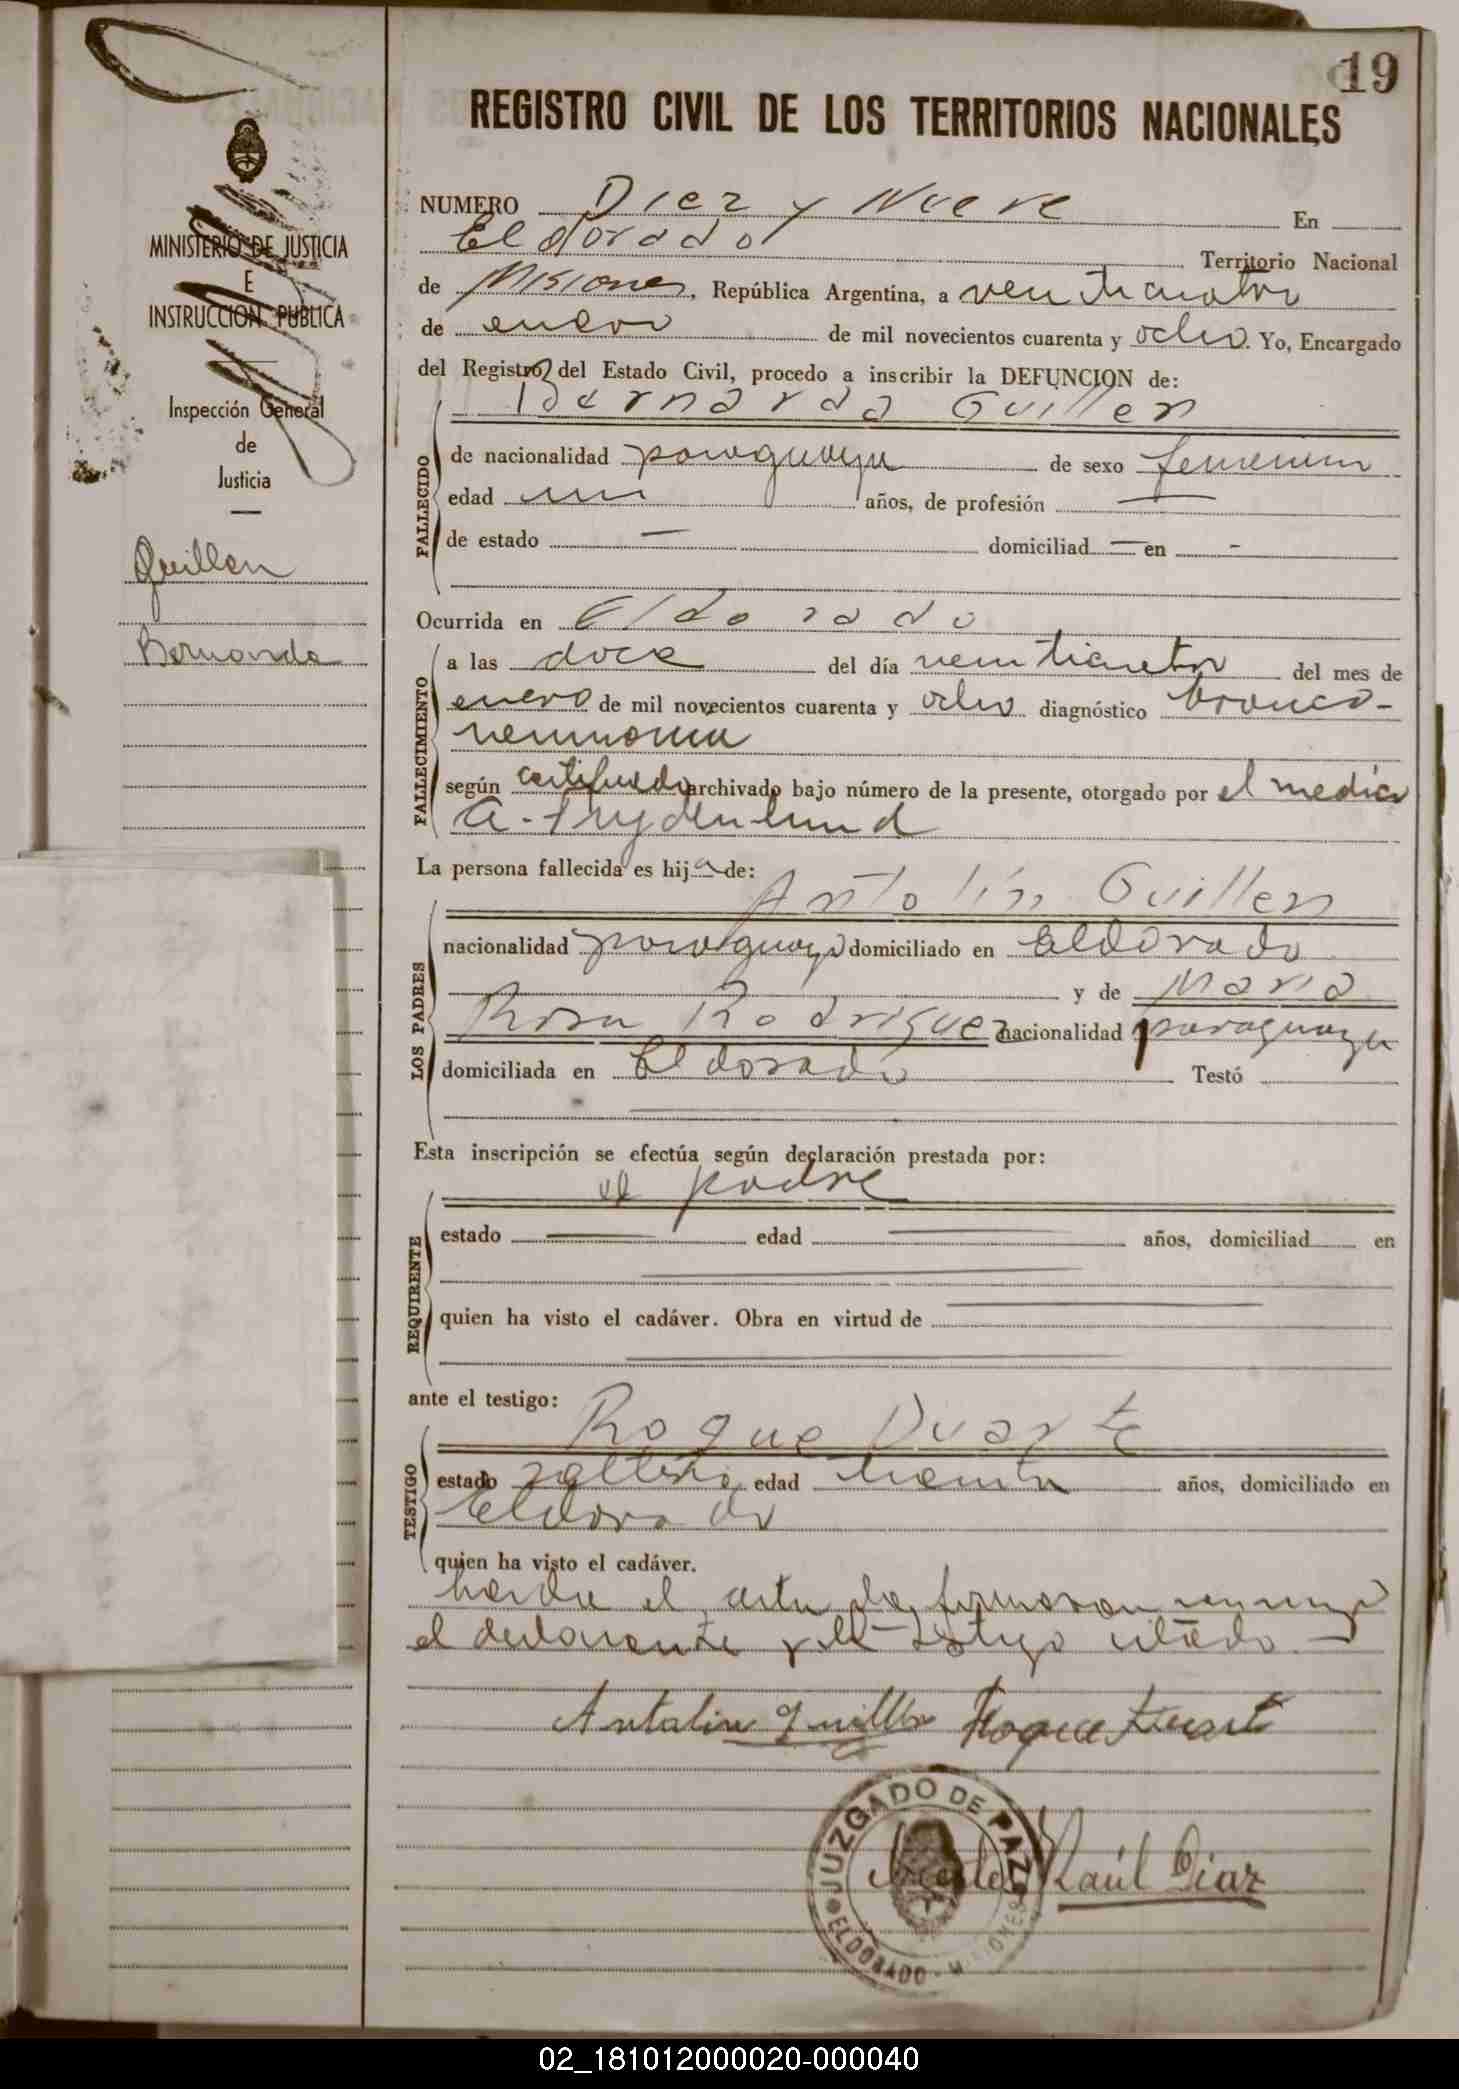 19
REGISTRO CIVIL DE LOS TERRITORIOS NACIONALES
MINISTERIO DE JUSTICIA
E
INSTRUCCION PUBLICA
Inspección General
de
Justicia
Guillen
Bernarda
NUMERO Diez y Nueve En
Eldorado Territorio Nacional
de Misiones, República Argentina, a veinticuatro
de enero de mil novecientos cuarenta y ocho. Yo, Encargado
del Registro del Estado Civil, procedo a inscribir la DEFUNCION de:
Bernarda Guillen
FALLECIDO
de nacionalidad paraguaya de sexo femenino
edad un años, de profesión —
de estado — domiciliad — en -
Ocurrida en Eldorado
FALLECIMIENTO
a las doce del día veinticuatro del mes de
enero de mil novecientos cuarenta y ocho diagnóstico bronco-
neumonia
según certificado archivado bajo número de la presente, otorgado por el medico
A. Frydenlund
La persona fallecida es hija de:
Antolín Guillen
LOS PADRES
nacionalidad paraguayo domiciliado en Eldorado
y de Maria
Rosa Rodriguez nacionalidad paraguaya
domiciliada en Eldorado Testó
Esta inscripción se efectúa según declaración prestada por:
el padre
REQUIRENTE
estado — edad — años, domiciliad en
quien ha visto el cadáver. Obra en virtud de —
ante el testigo:
Roque Duarte
TESTIGO
estado soltero edad treinta años, domiciliado en
Eldorado
quien ha visto el cadáver.
el acta la firmaron
el declarante y el testigo citado
Antolin Guillen Roque Duarte
JUZGADO DE PAZ
ELDORADO - MISIONES
Raúl Diaz
02_181012000020-000040